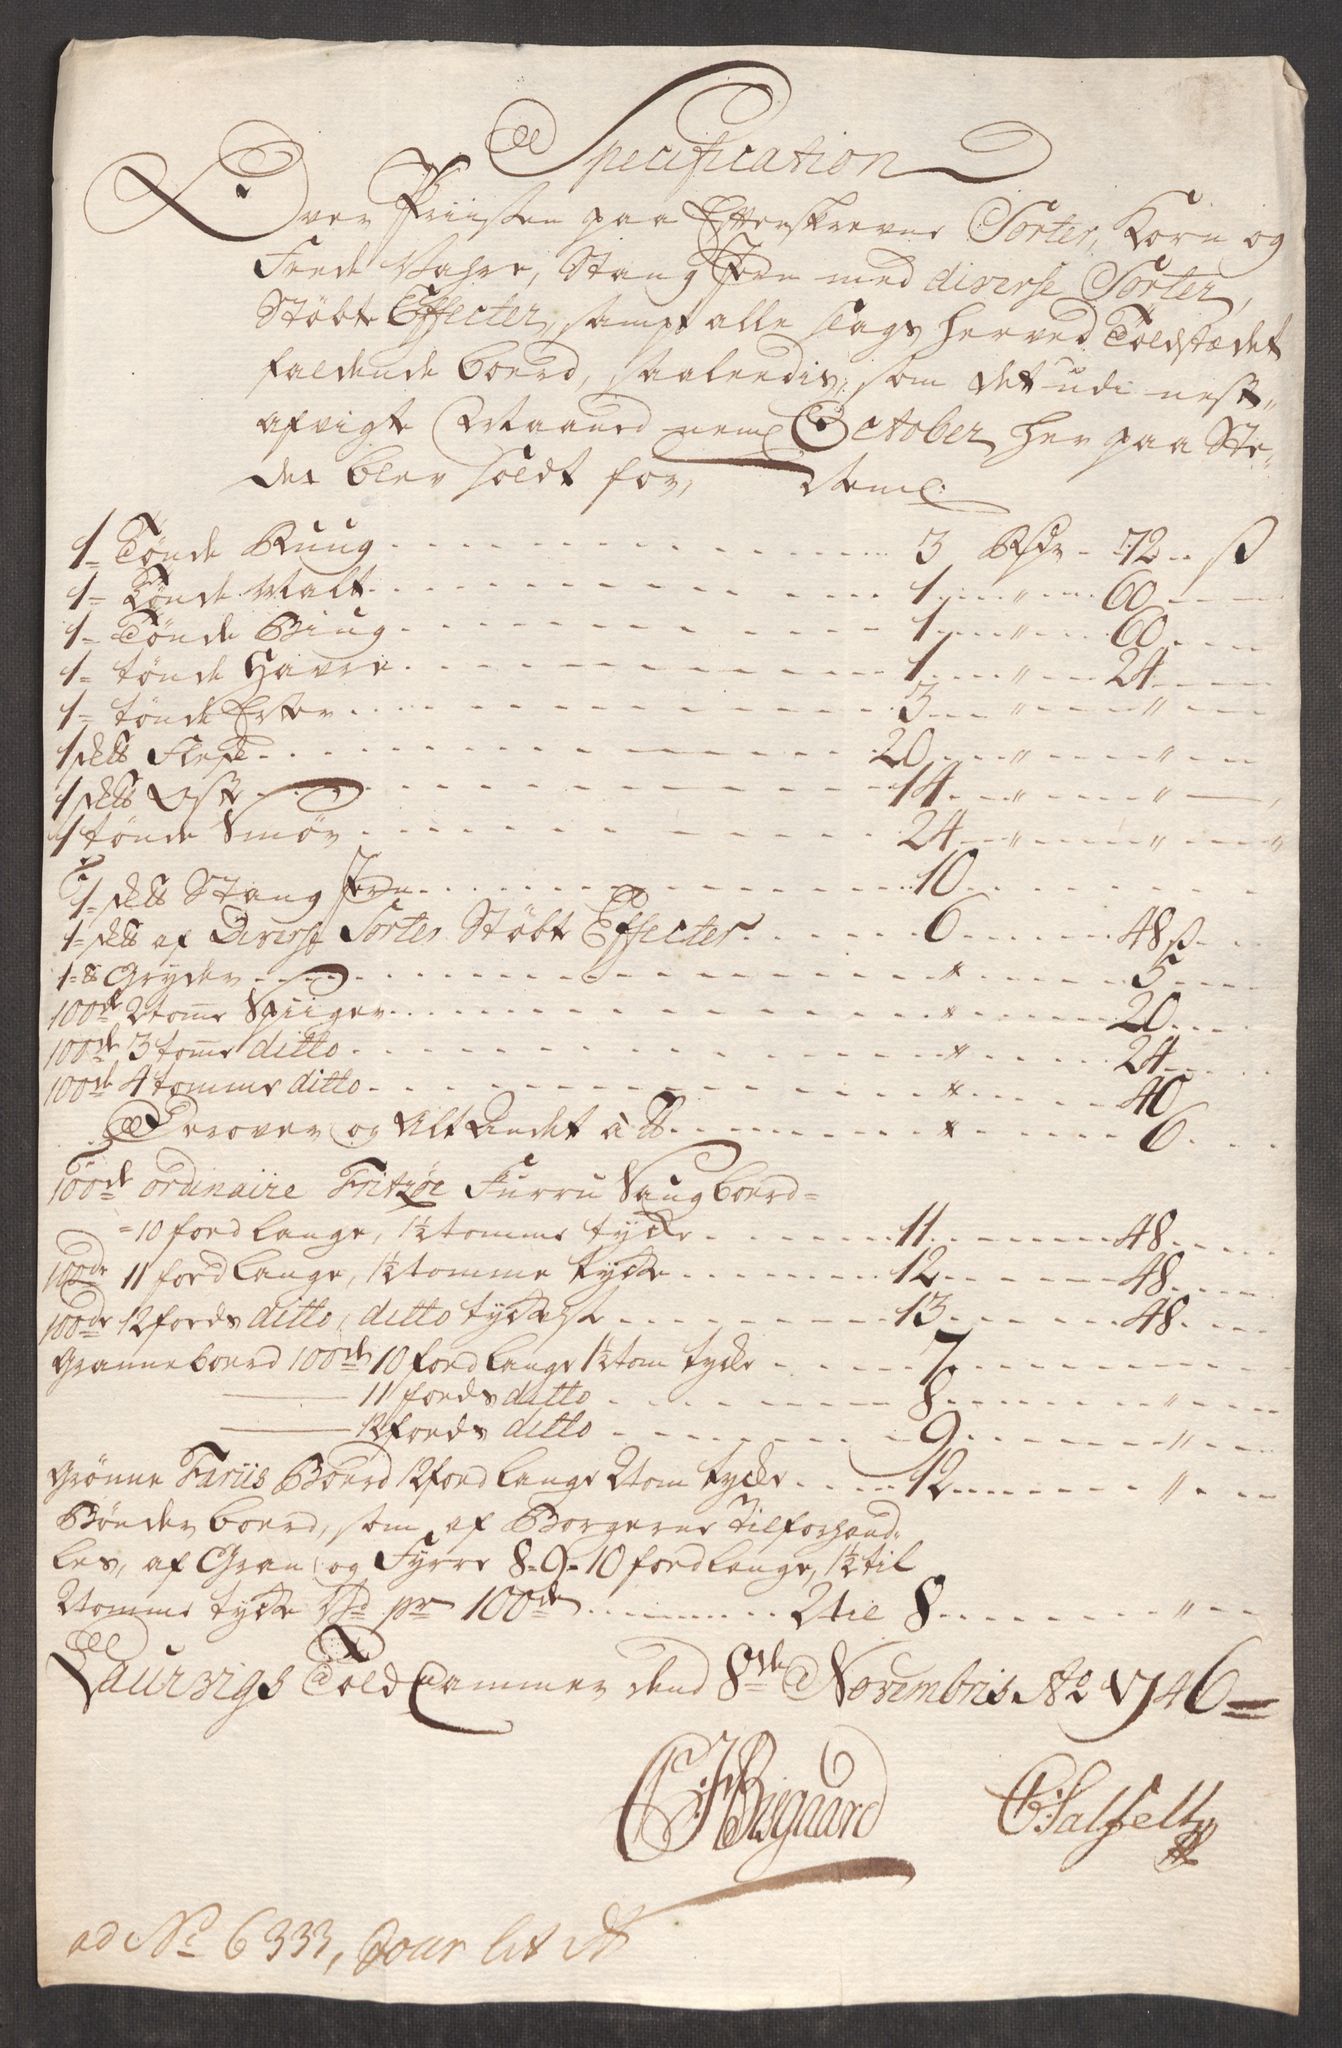 Specification
Over Priisen paa Efterskrevne Sorter, Korn og
Fede Vahre, Stang Jern med diverse Sorter,
Støbte Effecter, sampt alle slags herved Toldstædet
faldende boerd, saaleedis, som det udi nest-
afvigte Maaned neml October her paa Ste-
det blev soldt for, Neml.
1 Tønde Ruug 3 Rdr 72 ß
1 Tønde Malt 1 " 60
1 Tønde Biug 1 " 60
1 tønde Havre 1 " 24
1 tønde Erter 3 " "
1 sk℔ Flesk 20 " "
1 sk℔ Ost 14 " "
1 tønde Smør 24 " " "
1 sk℔ Stang Jern 10
1 sk℔ af Diverse Sorter Støbt Effecter 6 48 ß
1 ℔ Gryder * 5
100de 2 tomr Spiiger * 20
100de 3 tomr ditto * 24
100de 4 tomme ditto * 40
og Alt Andet à ℔ * 6
100de ordinaire Fritzøe Furru Saugboerd
10 foed lange, 1½ tomme tycke 11 48
100de 11 foed lange, 1½ tomme tycke 12 48
100de 12 foeds ditto, ditto tyckelse 13 48
Granneboerd 100de 10 foed lange 1½ tom tycke 7
11 foeds ditto 8 "
12 foeds ditto 9 "
Grønne Fariis Boerd 12 foed lange 2 tom tycke 12 "
Bønder boerd, som af Borgerne tilforhand-
les, af Gran og Fyrre 8-9-10 foed lange, 1½ til
2 tomme tycke pr 100de 2 til 8 "
Laurvigs Told Cammer dend 8de Novembris Ao 1746
C F Bisgaard C Salfelt
ad No 6333, Jour lit A